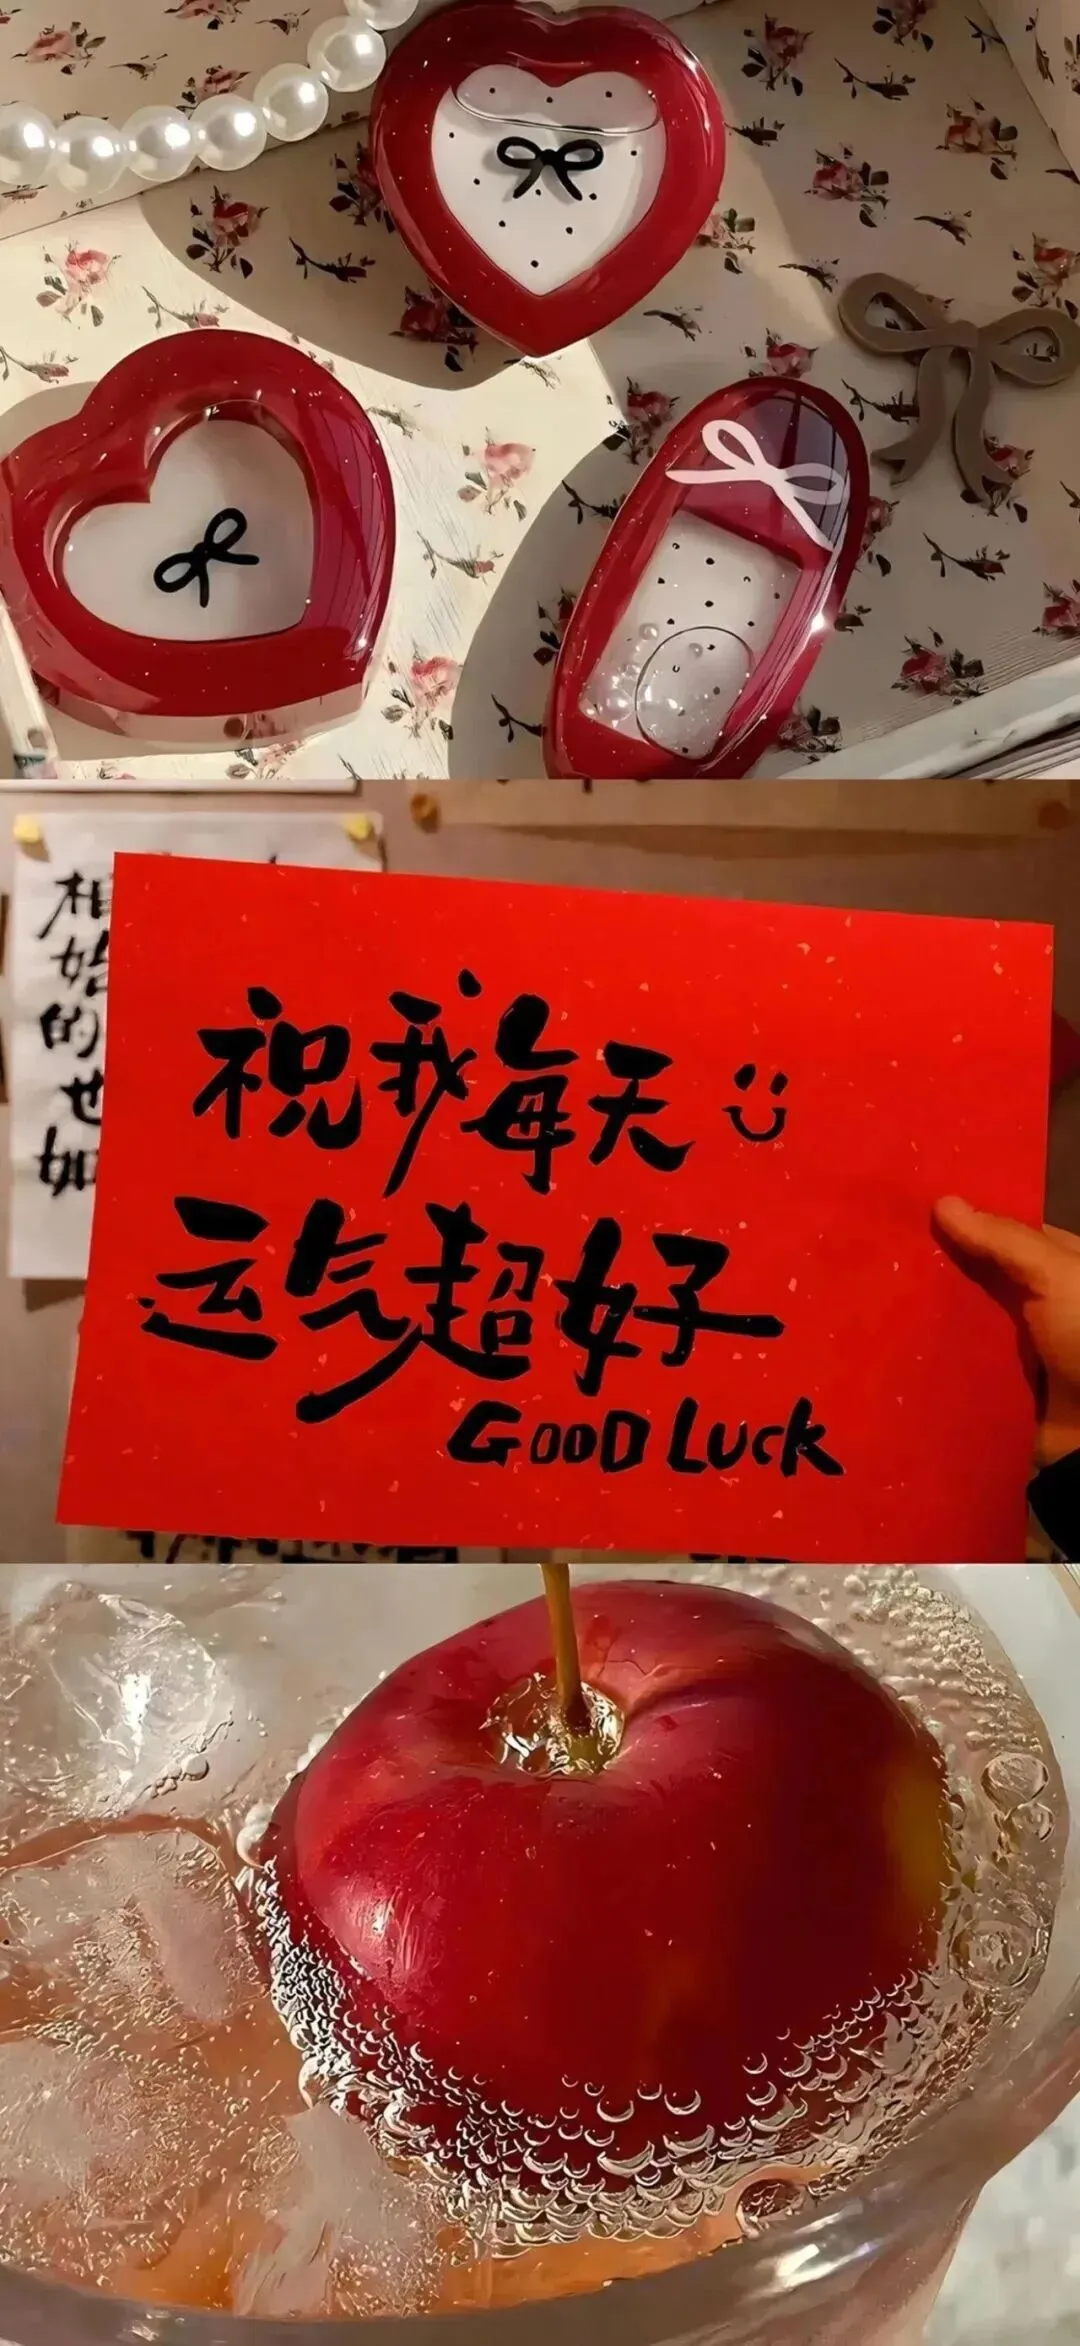 祝我每天
运气超好
GOOD LUCK
的
也
如